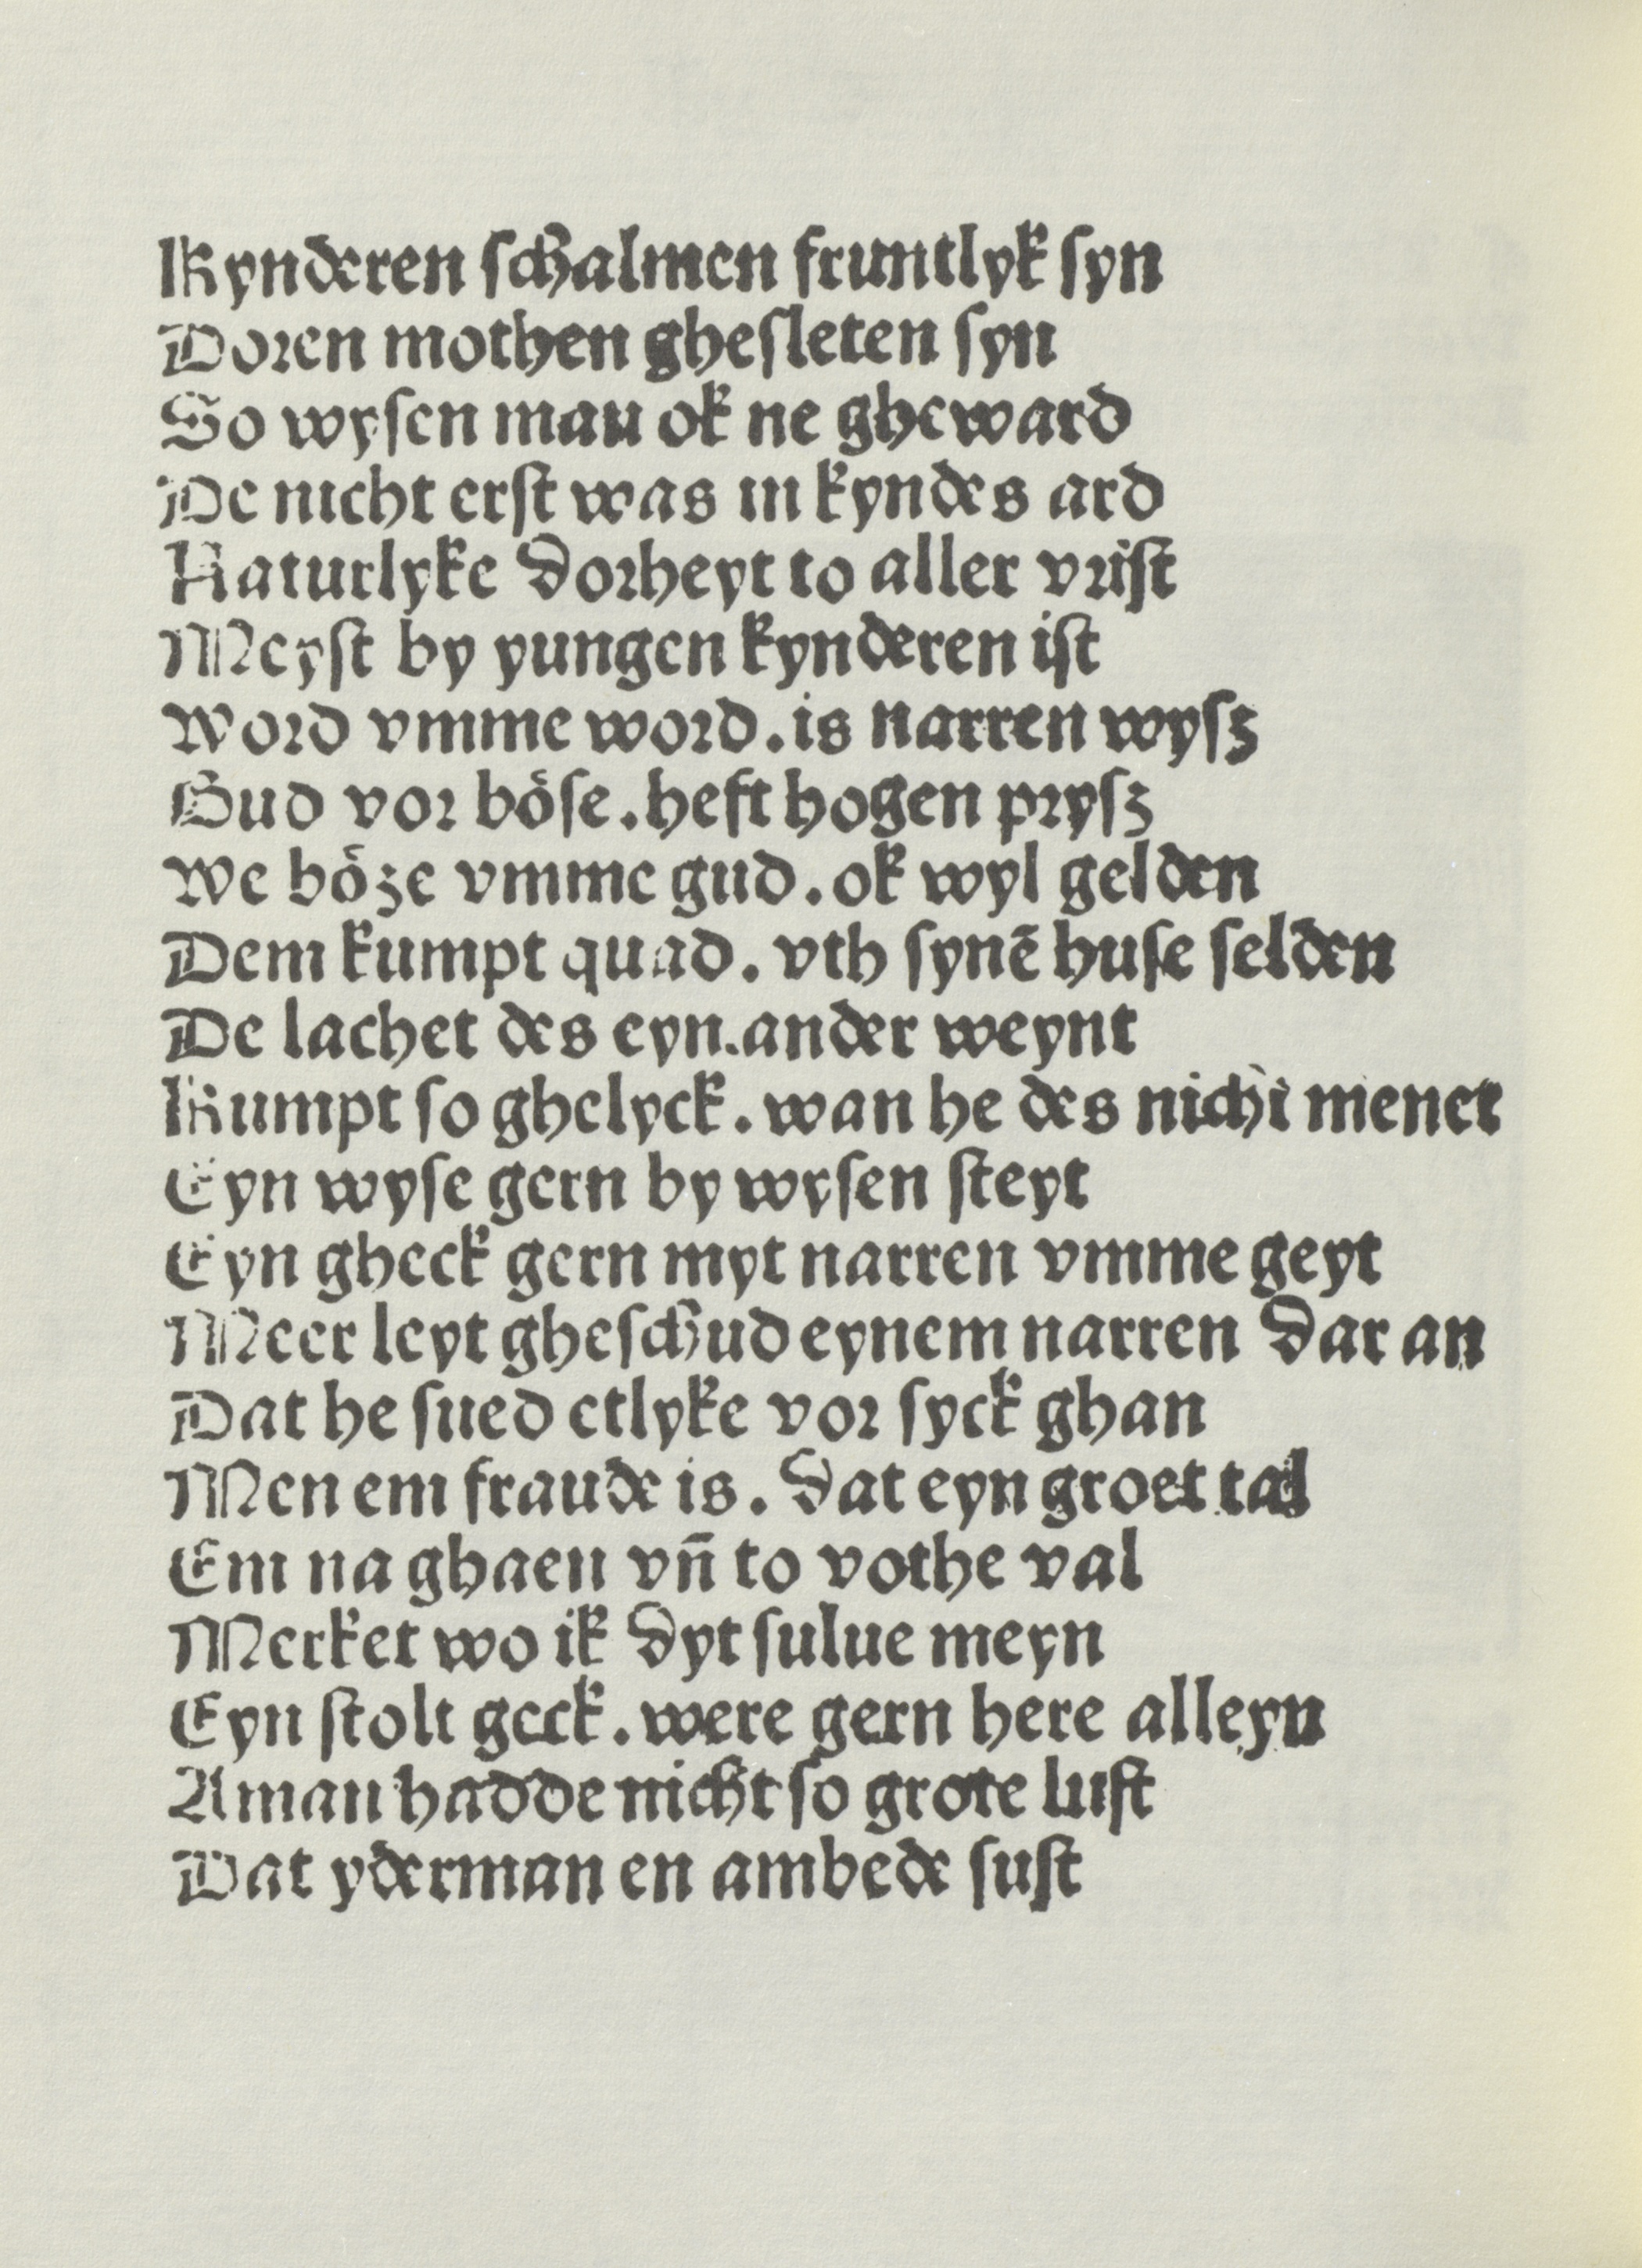 Kynderen schalmen fruntlyk syn
Doren mothen ghesleten syn
So wysen mau ok ne gheward
De nicht erst was in kyndes ard
Naturlyke dorheyt to aller vrist
Meyst by yungen kynderen ist
Word vmme word. is narren wysz
Gud vor böse. heft hogen prysz
We böze vmme gud. ok wyl gelden
Dem kumpt quad. vth synē huse selden
De lachet des eyn. ander weynt
Kumpt so ghelyck. wan he des nicht menet
Eyn wyse gern by wysen steyt
Eyn gheck gern myt narren vmme geyt
Meer leyt gheschud eynem narren dar an
Dat he sued etlyke vor syck ghan
Men em fraude is. dat eyn groet tal
Em na ghaen vn̄ to vothe val
Merket wo ik dyt sulue meyn
Eyn stolt geck. were gern here alleyn
Aman hadde nicht so grote lust
Dat yderman en ambede sust